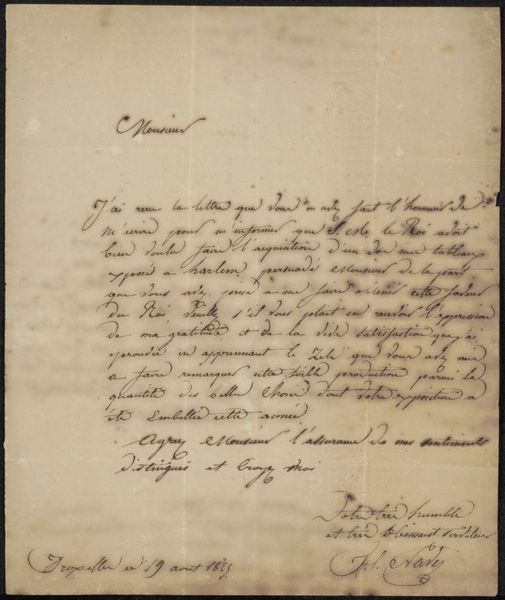 Monsieur
J'ai recu la lettre que vous m'avez fait l'honneur de
m'écrire pour m'informer que S. M. le Roi avoit
bien voulu faire l'acquisition d'un de mes tableaux
exposé a harlem, persuadé Monsieur de la part
que vous avez prise a me faire obtenir cette faveur
du Roi Veuillez s'il vous plait en recevoir l'expression
de ma gratitude et de la satisfaction que j'ai
eprouvée en apprennant le Zele que vous avez mis
a faire remarquer cette foible production parmi la
quantité des belles choses dont votre exposition a
été Embellie cette année
Agreez Monsieur l'assurance de mes sentiments
distingués et Croyez moi
Votre très humble
et très obéissant serviteur
Navez
Bruxelles ce 19 aout 1825